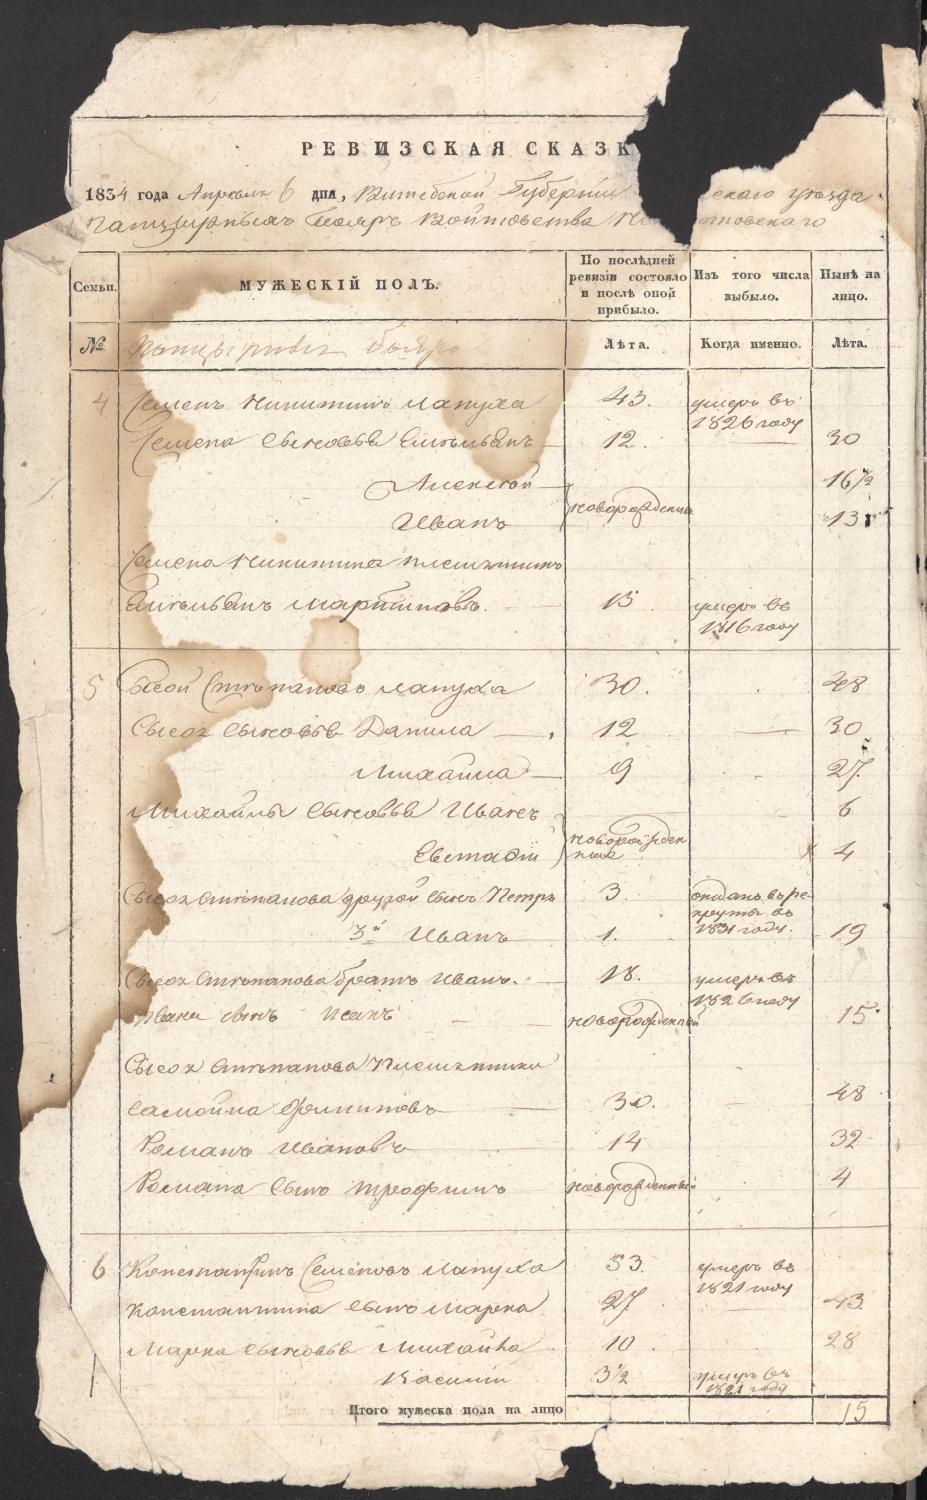 РЕВИЗСКАЯ СКАЗК
1834 года Апреля 6 дня, Витебской Губернии скаго уезда
Панцырныхъ Бояръ Войтовства
Семьи. МУЖЕСКІЙ ПОЛЪ. По послѣдней ревизіи состояло и послѣ оной прибыло. Изъ того числа выбыло. Нынѣ на лицо.
№ Панцырные бояре Лѣта. Когда именно. Лѣта.
4 Семенъ Никитинъ Лапуха 43. умеръ въ 1826 году
Семена сыновья Емельянъ 12 30
Алексей 16½
Иванъ новорожденные 13
Семена Никитина племянникъ
Емельянъ Мартиновъ. 15 умеръ въ 1816 году
5 Сысой Степановъ Лапуха 30. 48
Сысоя сыновья Данила 12 30
Михайла 9 27.
Михайлы сыновья Иванъ 6
Евстафій новорожденные 4
Сысоя Степанова другой сынъ Петръ 3. отданъ въ рекруты въ 1831 году.
3й Иванъ 1. 19
Сысоя Степанова братъ Иванъ. 18. умеръ въ 1826 году
Ивана сынъ Исакъ новорожденный 15
Сысоя Степанова племянники
Самойла Филиповъ 30. 48
Романъ Ивановъ 14 32
Романа сынъ Трофимъ новорожденный 4
6 Константинъ Семеновъ Лапуха 53. умеръ въ 1821 году
Константина сынъ Марка 27. 43
Марка сыновья Михайла 10 28
Василій 3½ умеръ въ 1821 году
Итого мужеска пола на лицо 15